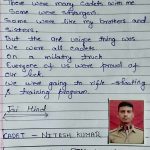 There were many cadets with me
Some were stranger
Some were like my brothers and
sisters.
But the one unique thing was
We were all cadets
On a military truck
Everyone of us were proud of
our luck.
We were going to rifle shooting
& training program.
Jai Hind
CADET - NITESH KUMAR